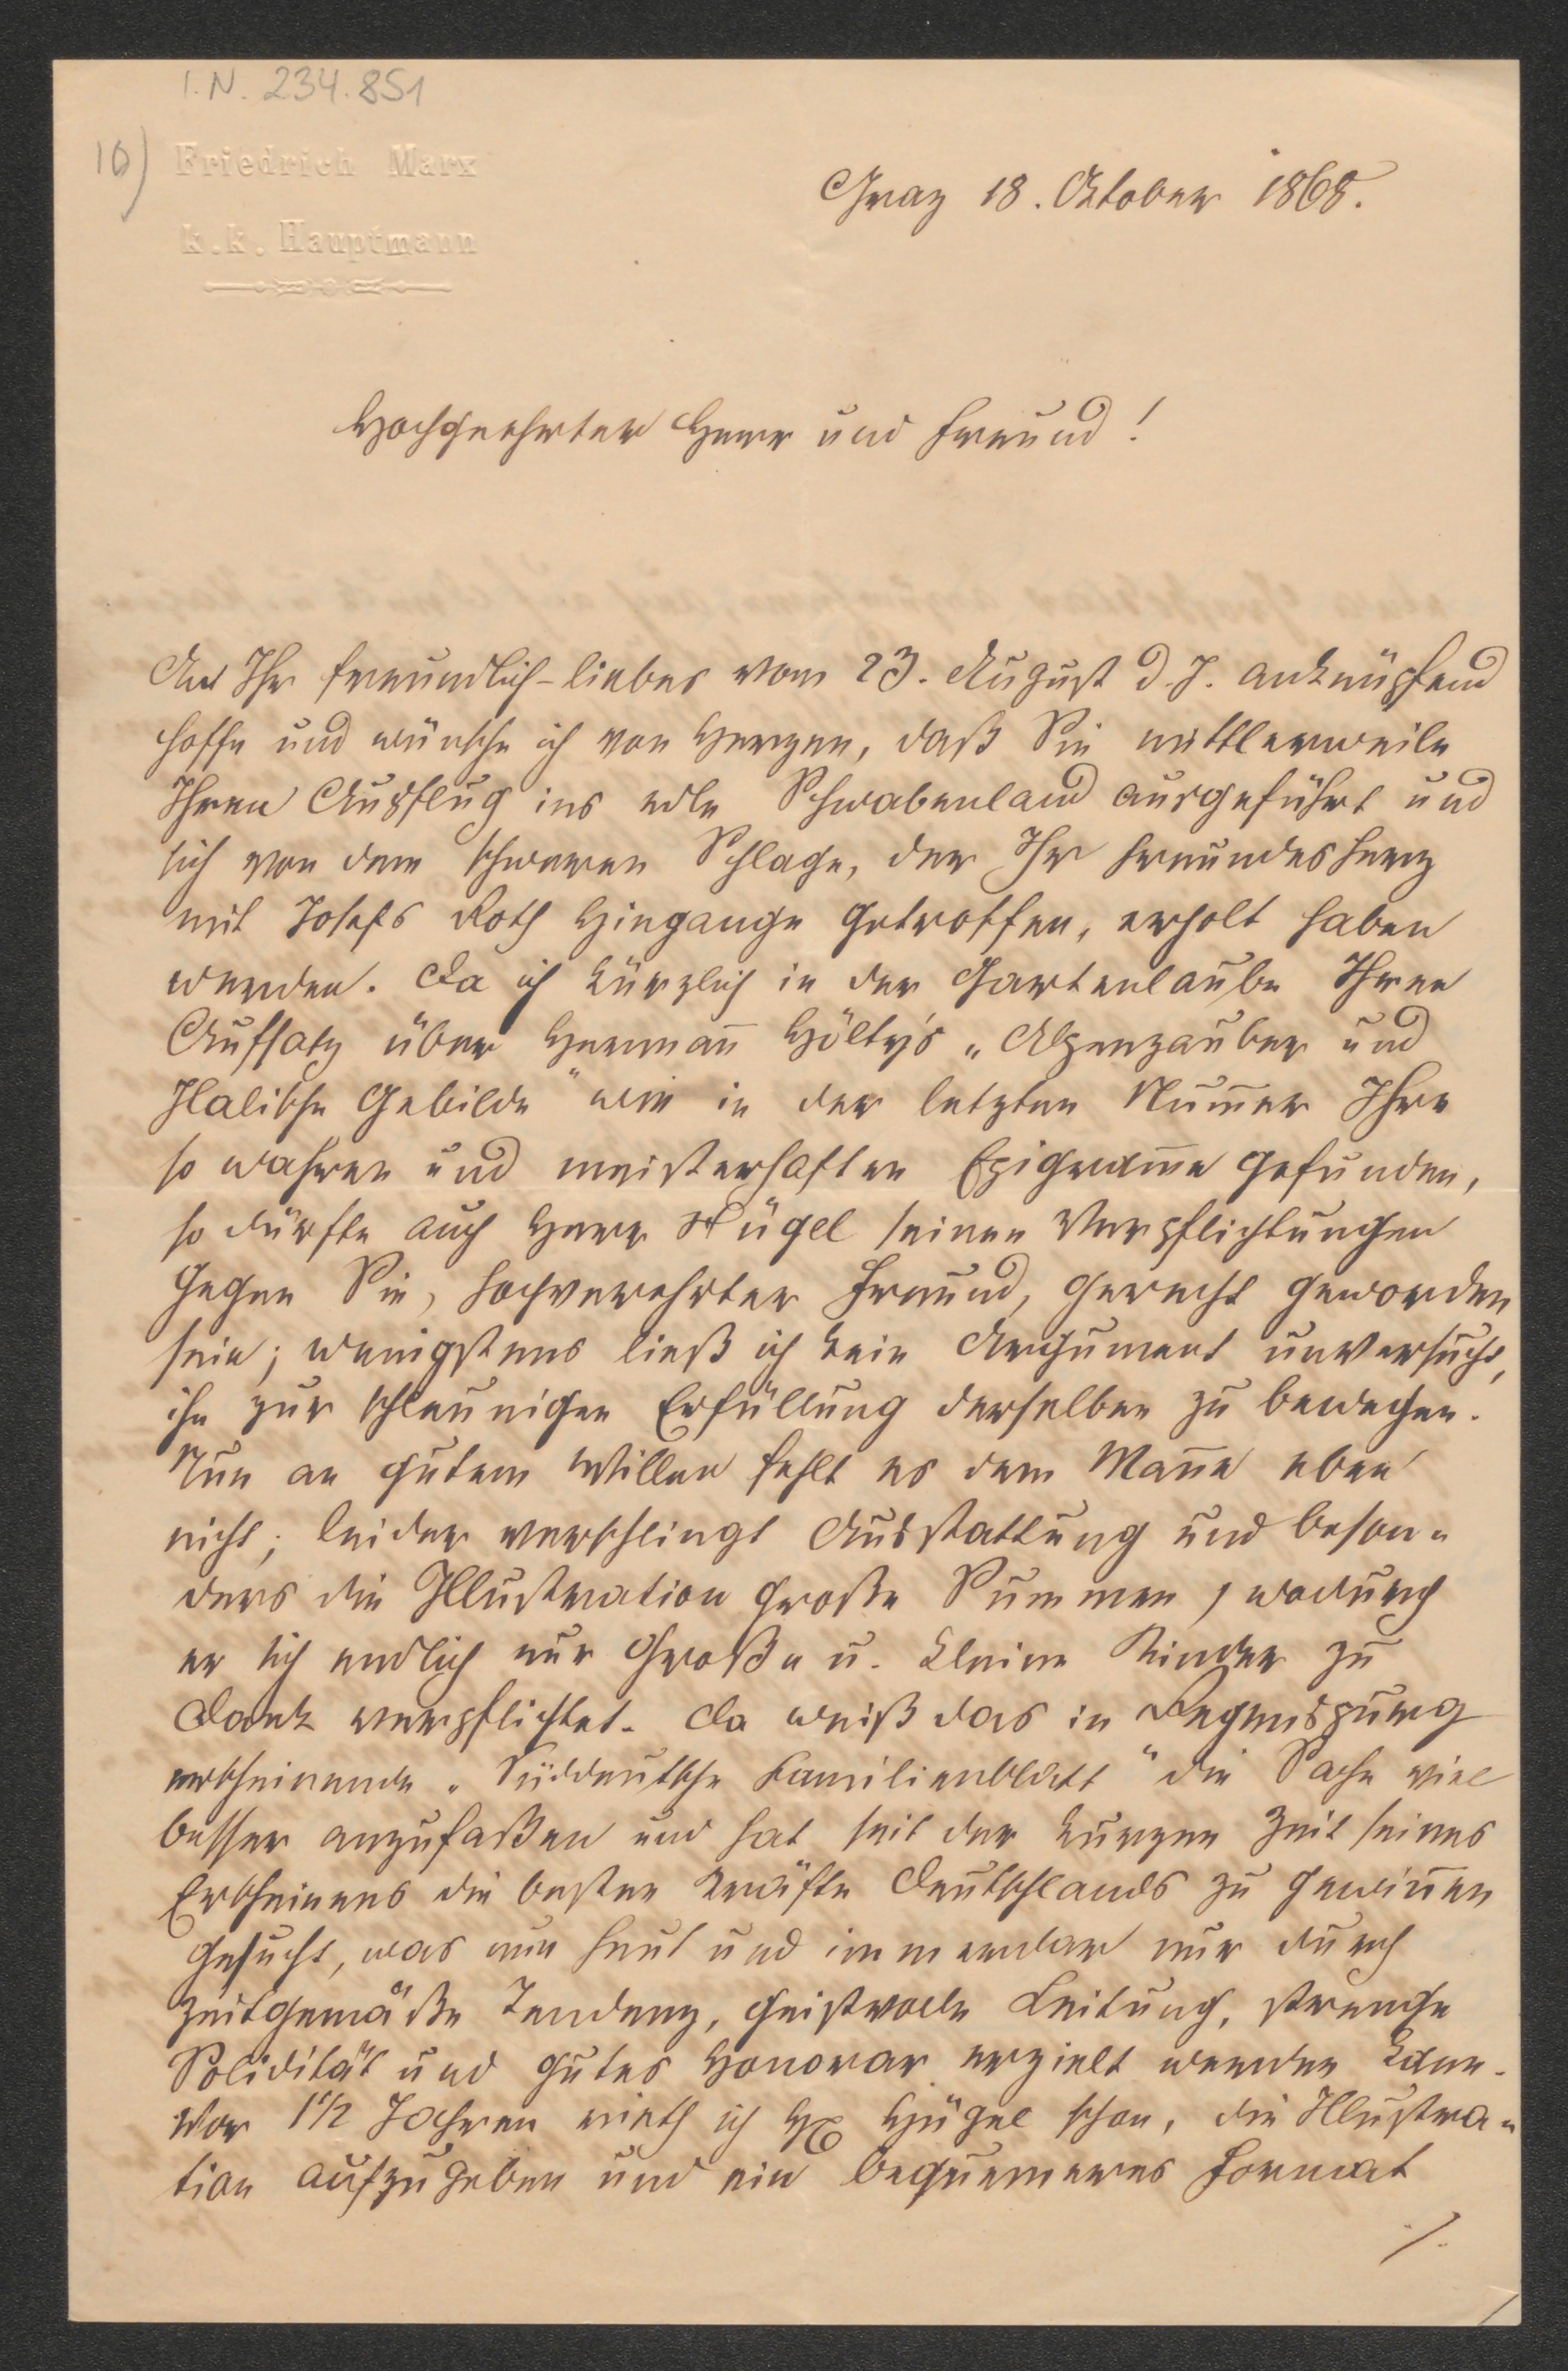 I.N. 234.851
10)
Friedrich Marx
k.k. Hauptmann
Graz 18. Oktober 1868.
Hochgeehrter Herr und Freund!
An Ihr freundlich-liebes vom 23. August d. J. anknüpfend
hoffe und wünsche ich von Herzen, daß Sie mittlerweile
Ihren Ausflug ins edle Schwabenland ausgeführt und
sich von dem schweren Schlage, der Ihr Freundesherz
mit Josefs Roth Hingange getroffen, erholt haben
werden. Da ich kürzlich in der Gartenlaube Ihren
Aufsatz über Herrmañ Hölty's „Alpenzauber und
Italische Gebilde" wie in der letzten Num̄er Ihre
so wahren und meisterhaften Epigram̄e gefunden,
so dürfte auch Herr Hügel seinen Verpflichtungen
gegen Sie, hochverehrter Freund, gerecht geworden
sein; wenigstens ließ ich kein Argument unversucht,
ihn zur schleunigen Erfüllung derselben zu bewegen.
Nun an gutem Willen fehlt es dem Mañe eben
nicht; leider verschlingt Ausstattung und beson-
ders die Illustration große Summen, wodurch
er sich endlich nur Große u. kleine Kinder zu
Dank verpflichtet. Da weiß das in Regenspurg
erscheinende „Süddeutsche Familienblatt" die Sache viel
besser anzufaßen und hat seit der kurzen Zeit seines
Erscheinens die besten Kräfte Deutschlands zu gewiñen
gesucht, was nun heut und immerdar nur durch
zeitgemäße Tendenz, geistvolle Leitung, strenge
Solidität und gutes Honorar erzielt werden kann.
Vor 1 1/2 Jahren rieth ich H. Hügel schon, die Illustra-
tion aufzugeben und ein bequemeres Format
./.